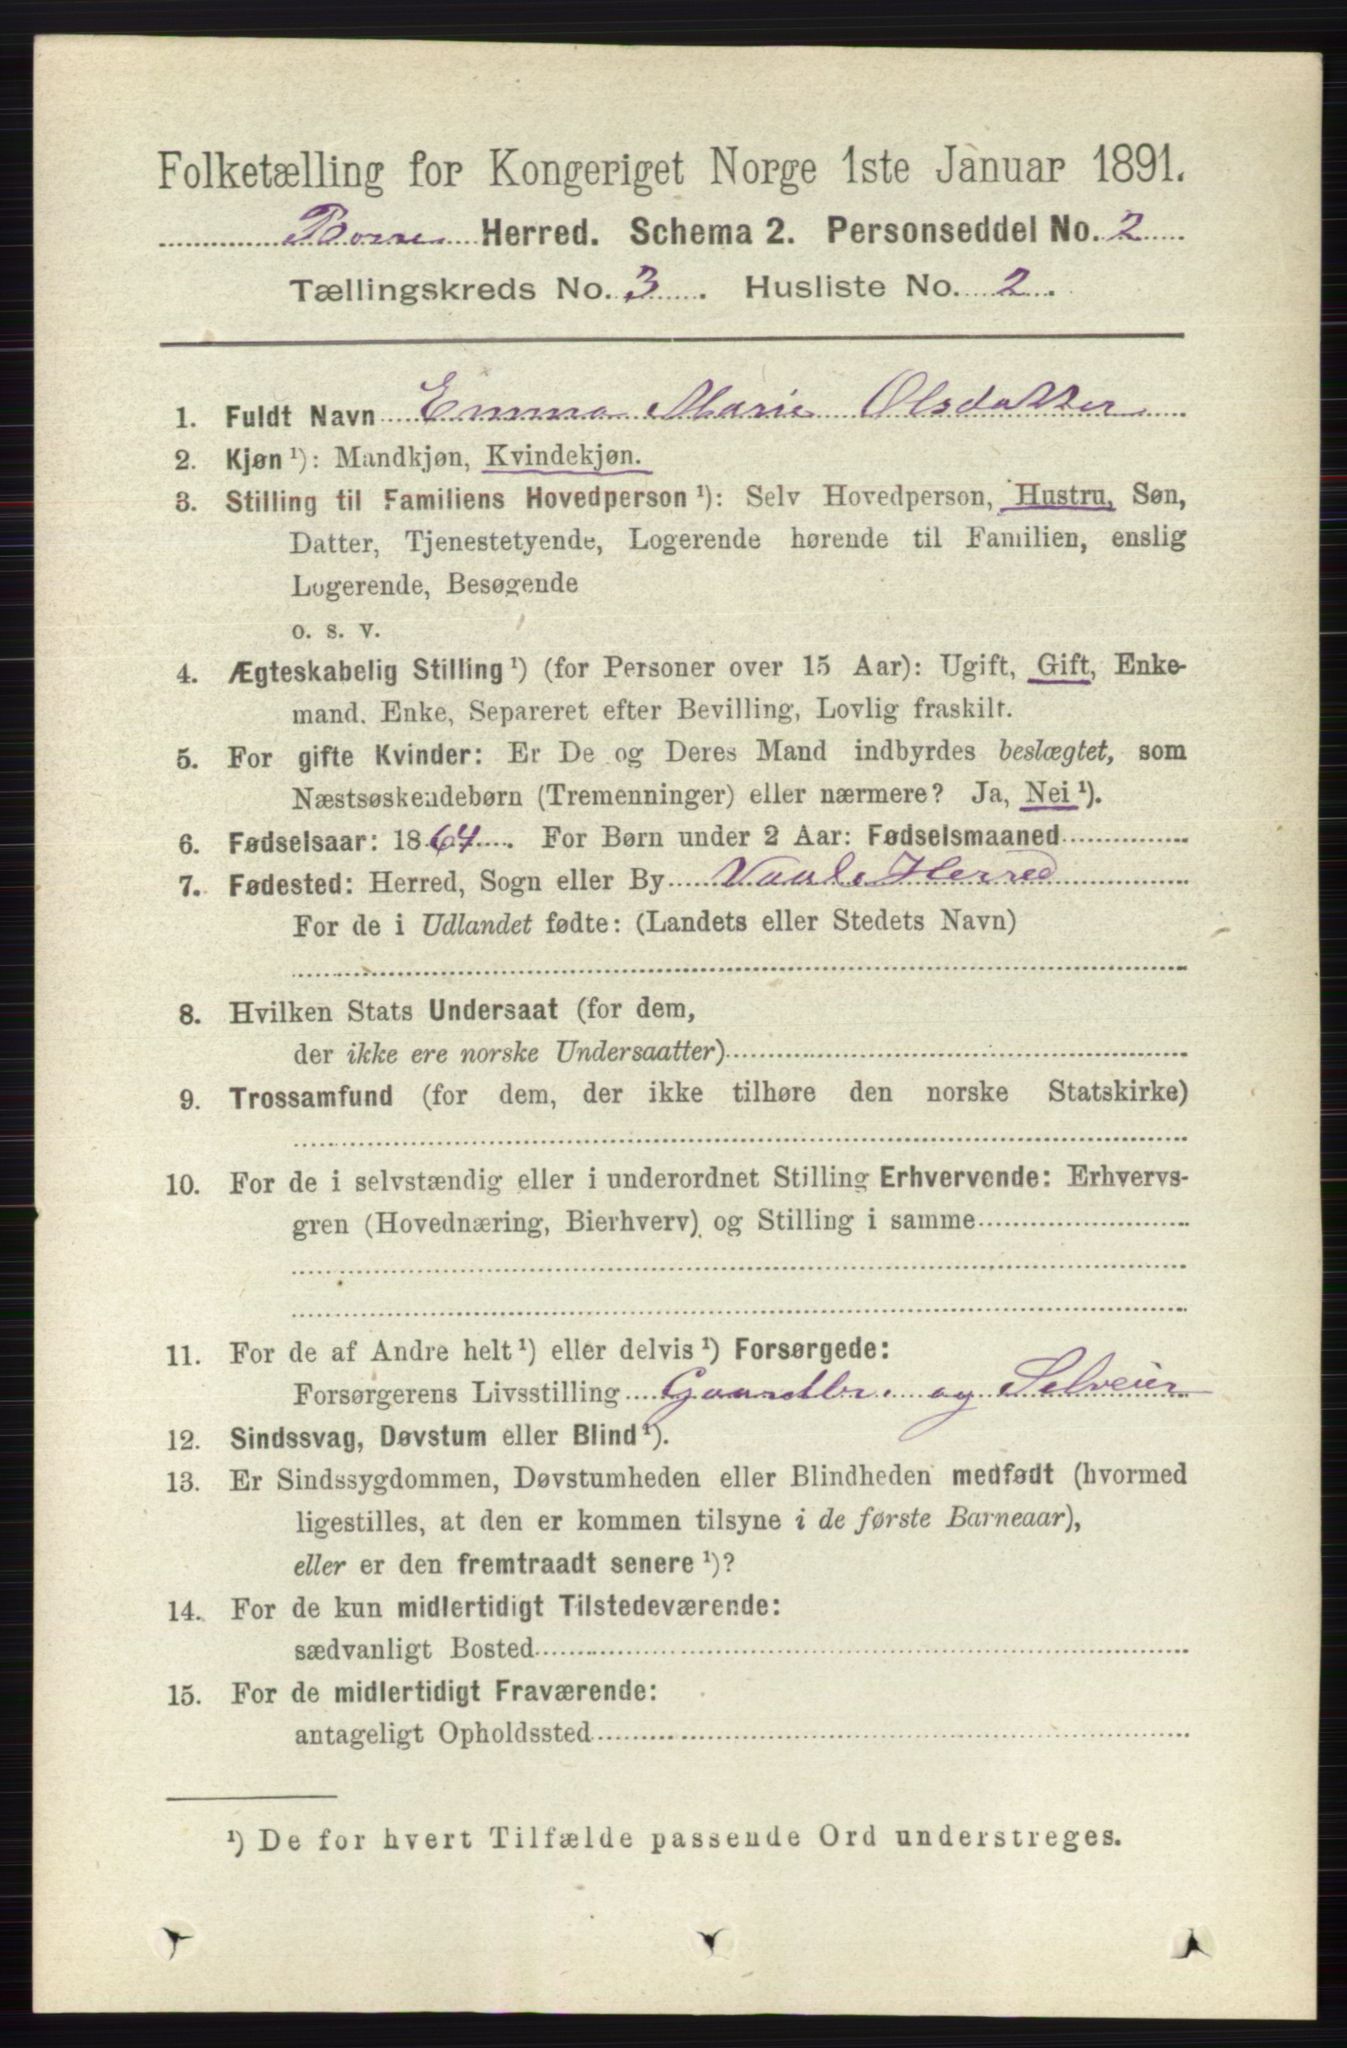 Folketælling for Kongeriget Norge 1ste Januar 1891.
Borre Herred. Schema 2. Personseddel No. 2
Tællingskreds No. 3. Husliste No. 2.
1. Fuldt Navn Emma Marie Olsdatter
2. Kjøn ¹): Mandkjøn, Kvindekjøn.
3. Stilling til Familiens Hovedperson ¹): Selv Hovedperson, Hustru, Søn,
Datter, Tjenestetyende, Logerende hørende til Familien, enslig
Logerende, Besøgende
o. s. v.
4. Ægteskabelig Stilling ¹) (for Personer over 15 Aar): Ugift, Gift, Enke-
mand, Enke, Separeret efter Bevilling, Lovlig fraskilt.
5. For gifte Kvinder: Er De og Deres Mand indbyrdes beslægtet, som
Næstsøskendebørn (Tremenninger) eller nærmere? Ja, Nei ¹).
6. Fødselsaar: 1864. For Børn under 2 Aar: Fødselsmaaned
7. Fødested: Herred, Sogn eller By Vaale Herred
For de i Udlandet fødte: (Landets eller Stedets Navn)
8. Hvilken Stats Undersaat (for dem,
der ikke ere norske Undersaatter)
9. Trossamfund (for dem, der ikke tilhøre den norske Statskirke)
10. For de i selvstændig eller i underordnet Stilling Erhvervende: Erhvervs-
gren (Hovednæring, Bierhverv) og Stilling i samme
11. For de af Andre helt ¹) eller delvis ¹) Forsørgede:
Forsørgerens Livsstilling Gaardbr. og Selveier
12. Sindssvag, Døvstum eller Blind ¹).
13. Er Sindssygdommen, Døvstumheden eller Blindheden medfødt (hvormed
ligestilles, at den er kommen tilsyne i de første Barneaar),
eller er den fremtraadt senere ¹)?
14. For de kun midlertidigt Tilstedeværende:
sædvanligt Bosted
15. For de midlertidigt Fraværende:
antageligt Opholdssted
¹) De for hvert Tilfælde passende Ord understreges.